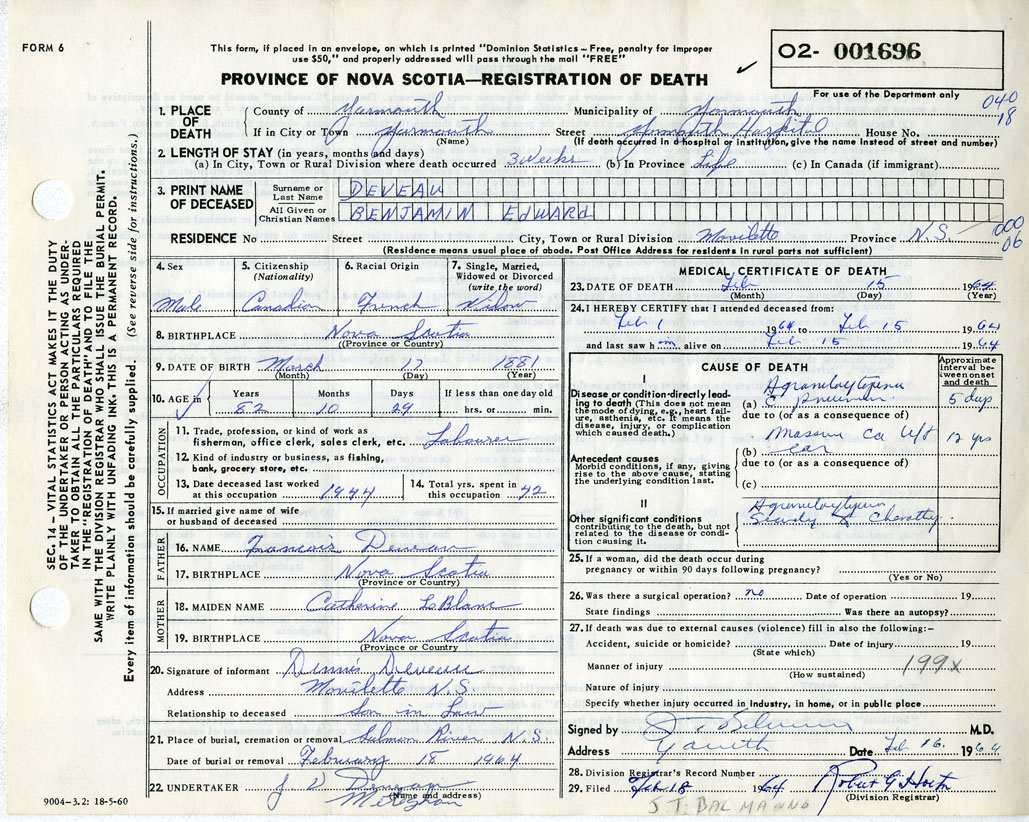 FORM 6
This form, if placed in an envelope, on which is printed "Dominion Statistics – Free, penalty for improper
use $50," and properly addressed will pass through the mail "FREE"
PROVINCE OF NOVA SCOTIA—REGISTRATION OF DEATH
✓
02- 001696
For use of the Department only
040
18
1. PLACE OF DEATH
County of Yarmouth Municipality of Yarmouth
If in City or Town Yarmouth Street Yarmouth Hospital House No.
(Name) (If death occurred in a hospital or institution, give the name instead of street and number)
2. LENGTH OF STAY (in years, months and days)
(a) In City, Town or Rural Division where death occurred 3 weeks (b) In Province Life (c) In Canada (if immigrant)
3. PRINT NAME OF DECEASED
Surname or Last Name DEVEAU
All Given or Christian Names BENJAMIN EDWARD
000
06
RESIDENCE No Street City, Town or Rural Division Province N.S.
(Residence means usual place of abode. Post Office Address for residents in rural parts not sufficient)
SEC. 14 – VITAL STATISTICS ACT MAKES IT THE DUTY
OF THE UNDERTAKER OR PERSON ACTING AS UNDER-
TAKER TO OBTAIN ALL THE PARTICULARS REQUIRED
IN THE "REGISTRATION OF DEATH" AND TO FILE THE
SAME WITH THE DIVISION REGISTRAR WHO SHALL ISSUE THE BURIAL PERMIT.
WRITE PLAINLY WITH UNFADING INK. THIS IS A PERMANENT RECORD.
Every item of information should be carefully supplied. (See reverse side for instructions.)
4. Sex Male
5. Citizenship (Nationality) Canadian
6. Racial Origin French
7. Single, Married, Widowed or Divorced (write the word) Widow
8. BIRTHPLACE Nova Scotia
(Province or Country)
9. DATE OF BIRTH March 17 1881
(Month) (Day) (Year)
10. AGE in Years Months Days If less than one day old
82 10 29 hrs. or min.
OCCUPATION
11. Trade, profession, or kind of work as
fisherman, office clerk, sales clerk, etc. Labourer
12. Kind of industry or business, as fishing,
bank, grocery store, etc.
13. Date deceased last worked at this occupation 1944
14. Total yrs. spent in this occupation 42
15. If married give name of wife
or husband of deceased
FATHER
16. NAME Francois Deveau
17. BIRTHPLACE Nova Scotia
(Province or Country)
MOTHER
18. MAIDEN NAME Catherine LeBlanc
19. BIRTHPLACE Nova Scotia
(Province or Country
20. Signature of informant Dennis Deveau
Address N.S.
Relationship to deceased Son in Law
21. Place of burial, cremation or removal Salmon River N.S.
Date of burial or removal February 18 1964
22. UNDERTAKER J V Deveau
(Name and address)
Meteghan
9004–3.2: 18-5-60
MEDICAL CERTIFICATE OF DEATH
23. DATE OF DEATH Feb 15 1964
(Month) (Day) (Year)
24. I HEREBY CERTIFY that I attended deceased from:
Feb 1 1964 to Feb 15 1964
and last saw him alive on Feb 15 1964
CAUSE OF DEATH
Approximate interval between onset and death
I
Disease or condition directly leading to death (This does not mean the mode of dying, e.g., heart failure, asthenia, etc. It means the disease, injury, or complication which caused death.)
(a) 5 days
due to (or as a consequence of)
Antecedent causes
Morbid conditions, if any, giving rise to the above cause, stating the underlying condition last.
(b) Massive Ca left ear 12 yrs
due to (or as a consequence of)
(c)
II
Other significant conditions
contributing to the death, but not related to the disease or condition causing it.
25. If a woman, did the death occur during
pregnancy or within 90 days following pregnancy?
(Yes or No)
26. Was there a surgical operation? no Date of operation 19
State findings Was there an autopsy?
27. If death was due to external causes (violence) fill in also the following:–
Accident, suicide or homicide? Date of injury 19
(State which)
Manner of injury 199x
(How sustained)
Nature of injury
Specify whether injury occurred in industry, in home, or in public place
Signed by M.D.
Address Date Feb 16. 1964
28. Division Registrar's Record Number
29. Filed Feb 18 1964 Robert G
(Division Registrar)